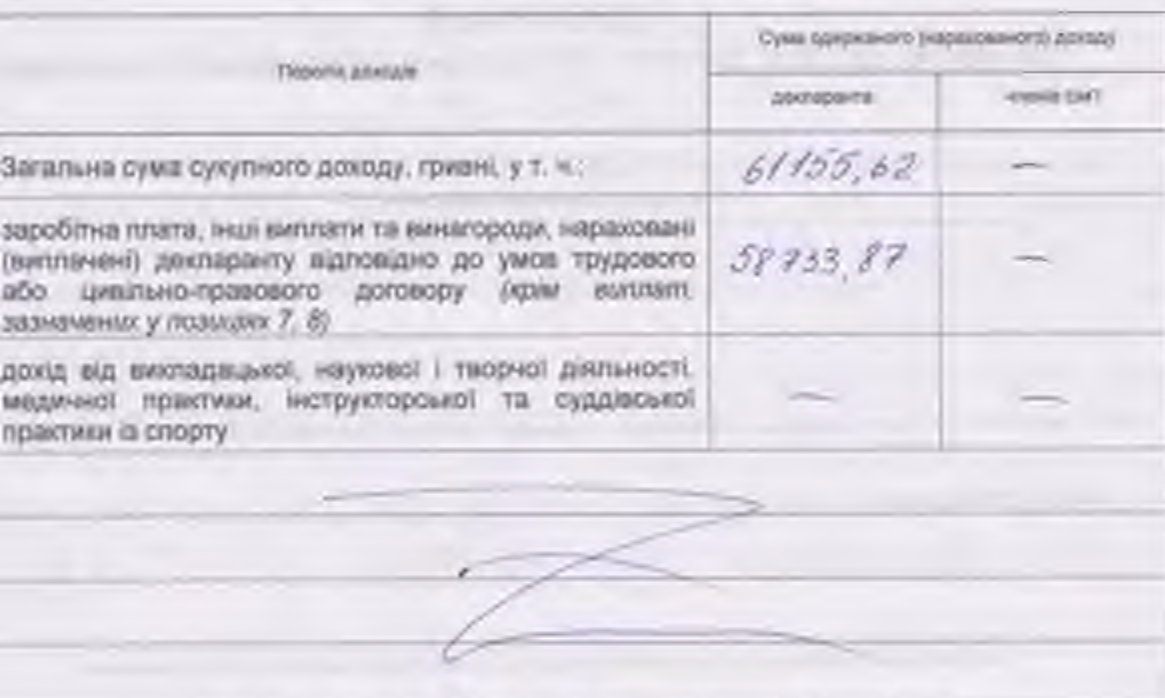 Перелік доходів
Сума одержаного (нарахованого) доходу
декларанта
членів сім'ї
Загальна сума сукупного доходу, гривні, у т. ч.:
61155,62
—
заробітна плата, інші виплати та винагороди, нараховані
(виплачені) декларанту відповідно до умов трудового
або цивільно-правового договору (крім виплат,
зазначених у позиціях 7, 8)
58733,87
—
дохід від викладацької, наукової і творчої діяльності,
медичної практики, інструкторської та суддівської
практики із спорту
—
—